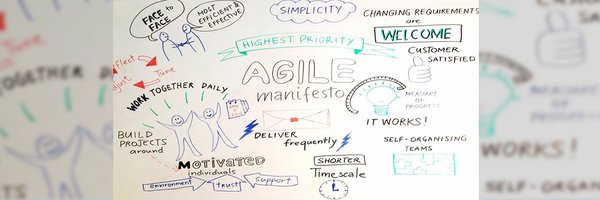 FACE to FACE
MOST EFFICIENT & EFFECTIVE
SIMPLICITY
CHANGING REQUIREMENTS
are
WELCOME
HIGHEST PRIORITY
CUSTOMER
SATISFIED
AGILE
manifesto
Tune
WORK TOGETHER DAILY
MEASURE
OF
PROGRESS
IT WORKS!
BUILD
PROJECTS
around
DELIVER
frequently
SELF-ORGANISING
TEAMS
MOTIVATED
individuals
environment
trust
support
SHORTER
Timescale
flect
just
TOGETHER DAILY
MEASURE
OF
PROGRESS
WORKS!
SELF-ORGANIS